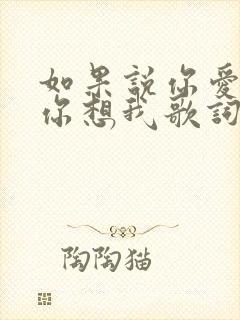 如果説你愛
你想我歌詞
陶陶猫